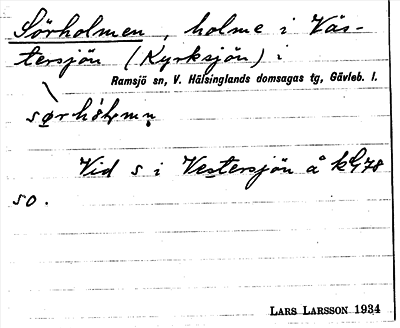 Sörholmen, holme i Väs-
tersjön (Kyrksjön) i
Ramsjö sn, V. Hälsinglands domsagas tg, Gävleb. l.
Vid s i Vestersjön å kbl 78
so.
LARS LARSSON 1934